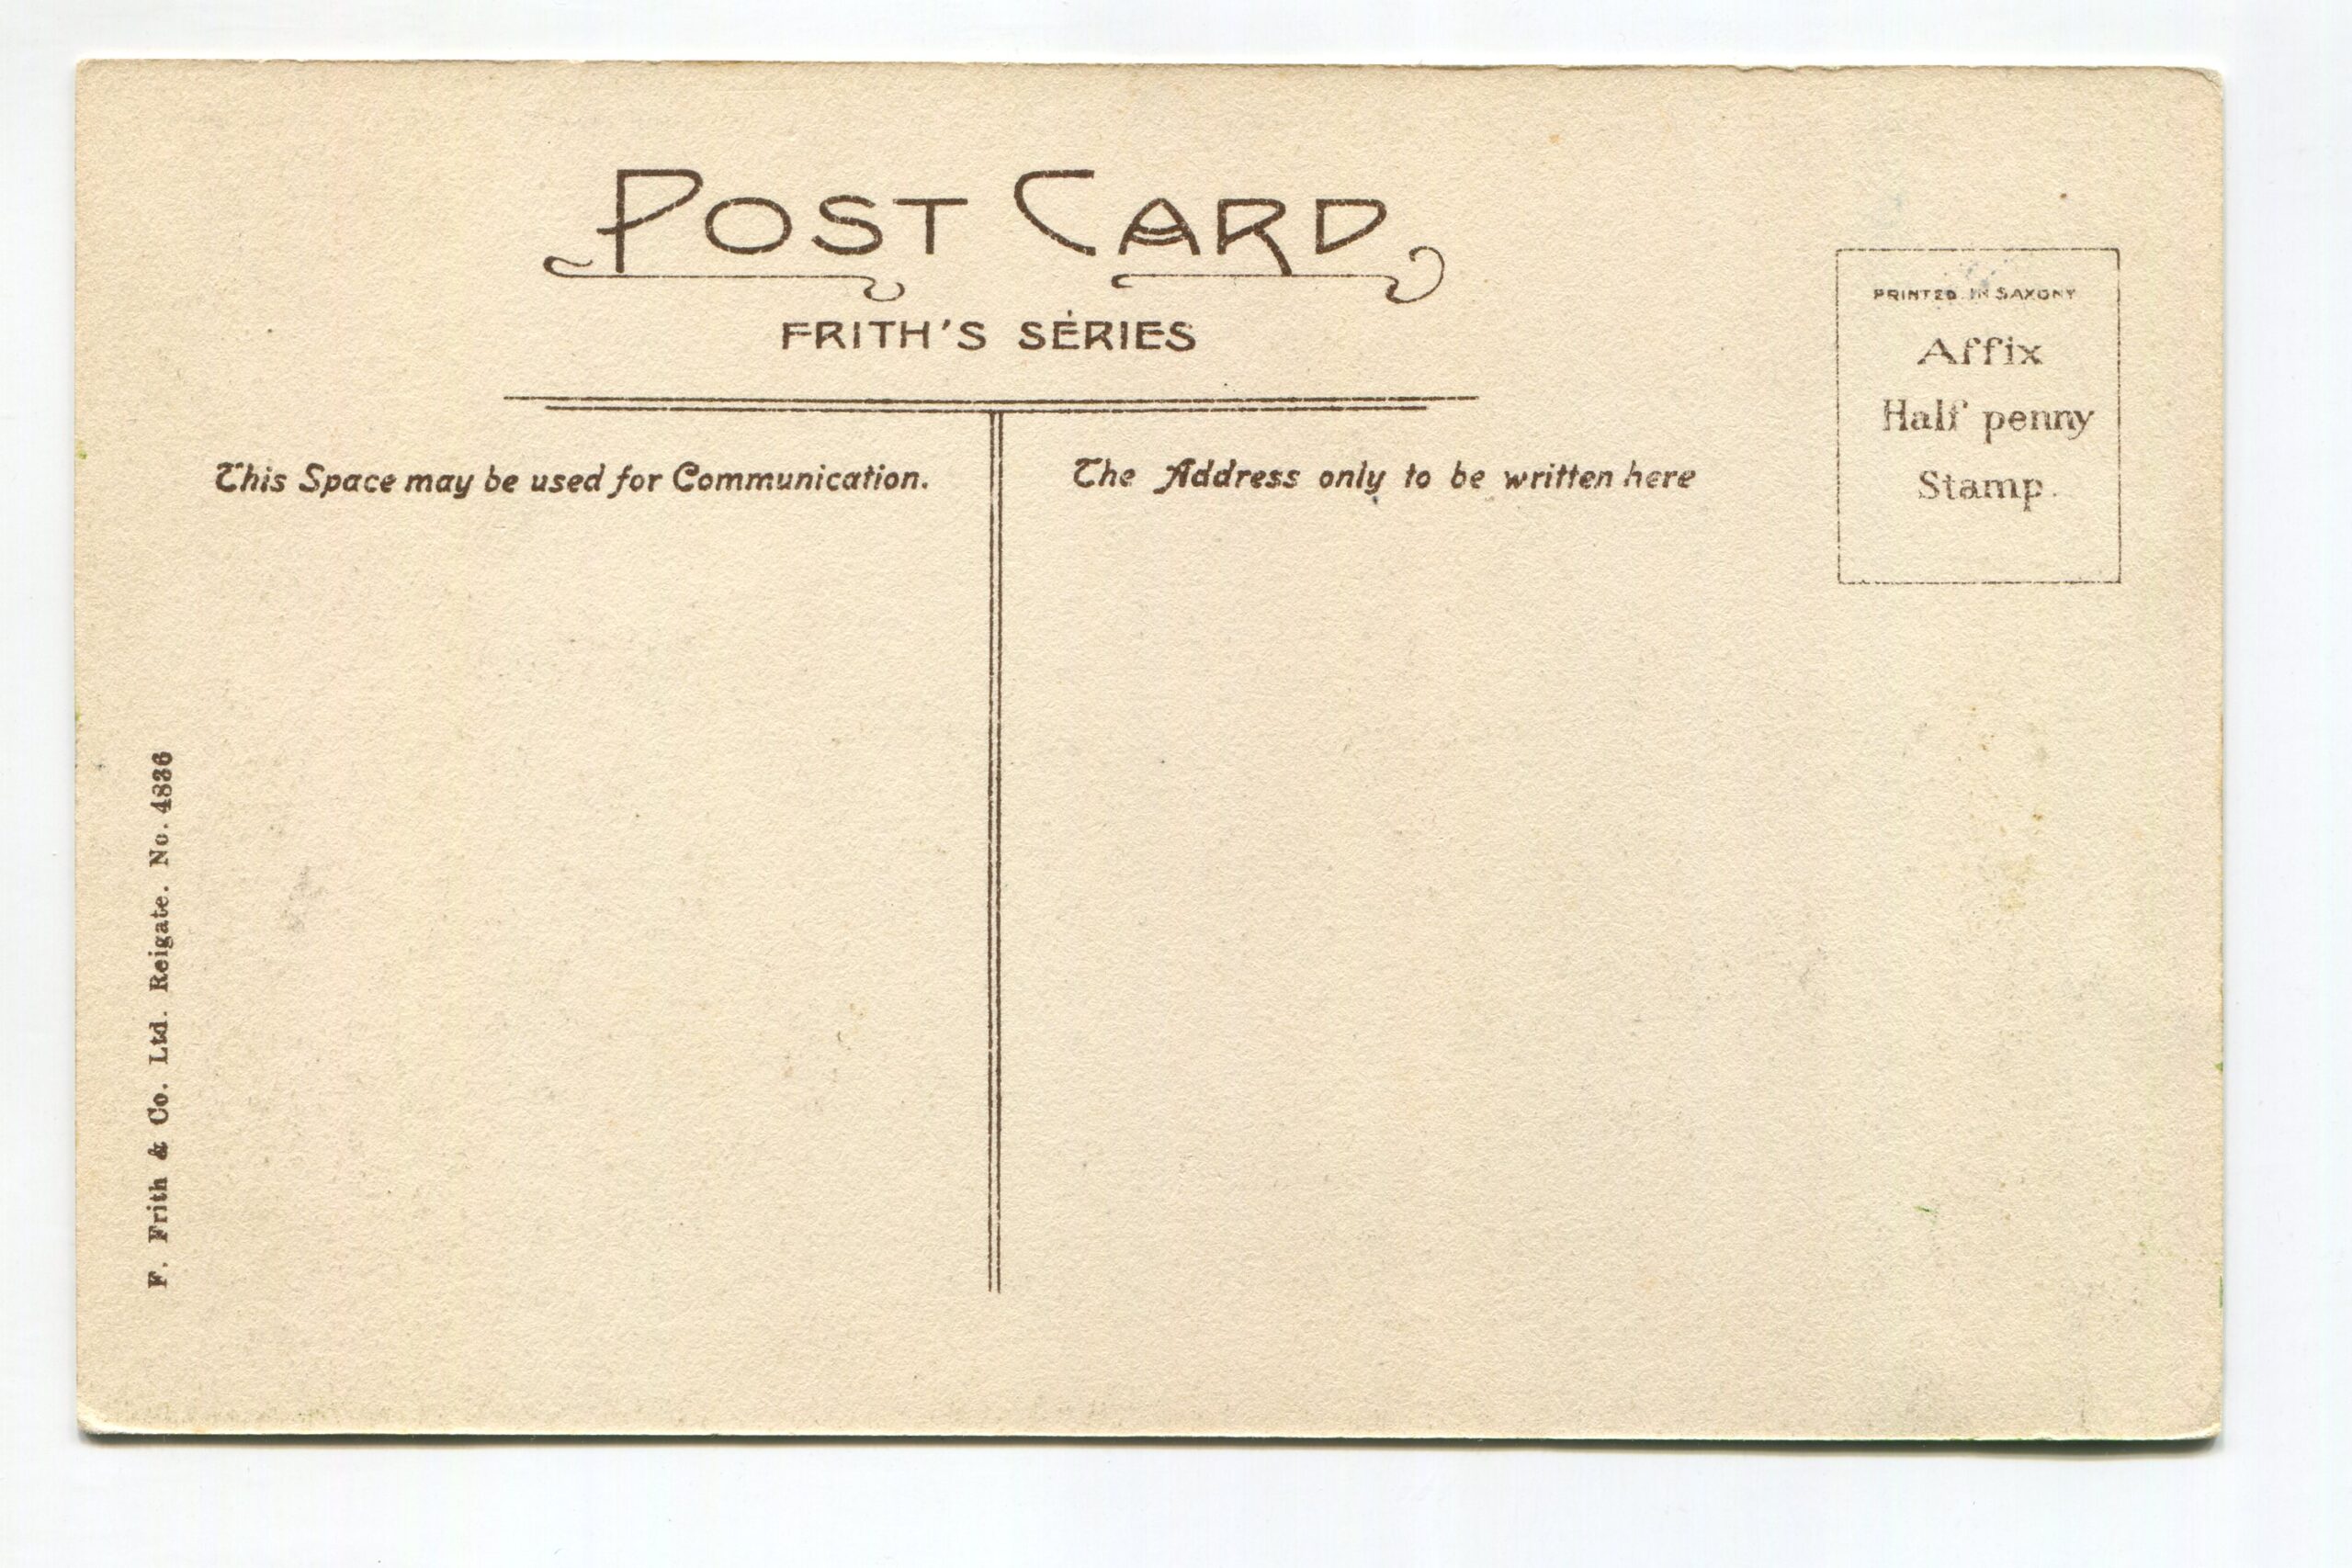 POST CARD
FRITH'S SERIES
This Space may be used for Communication.
The Address only to be written here
PRINTED IN SAXONY
Affix
Half penny
Stamp.
F. Frith & Co. Ltd. Reigate. No. 4836